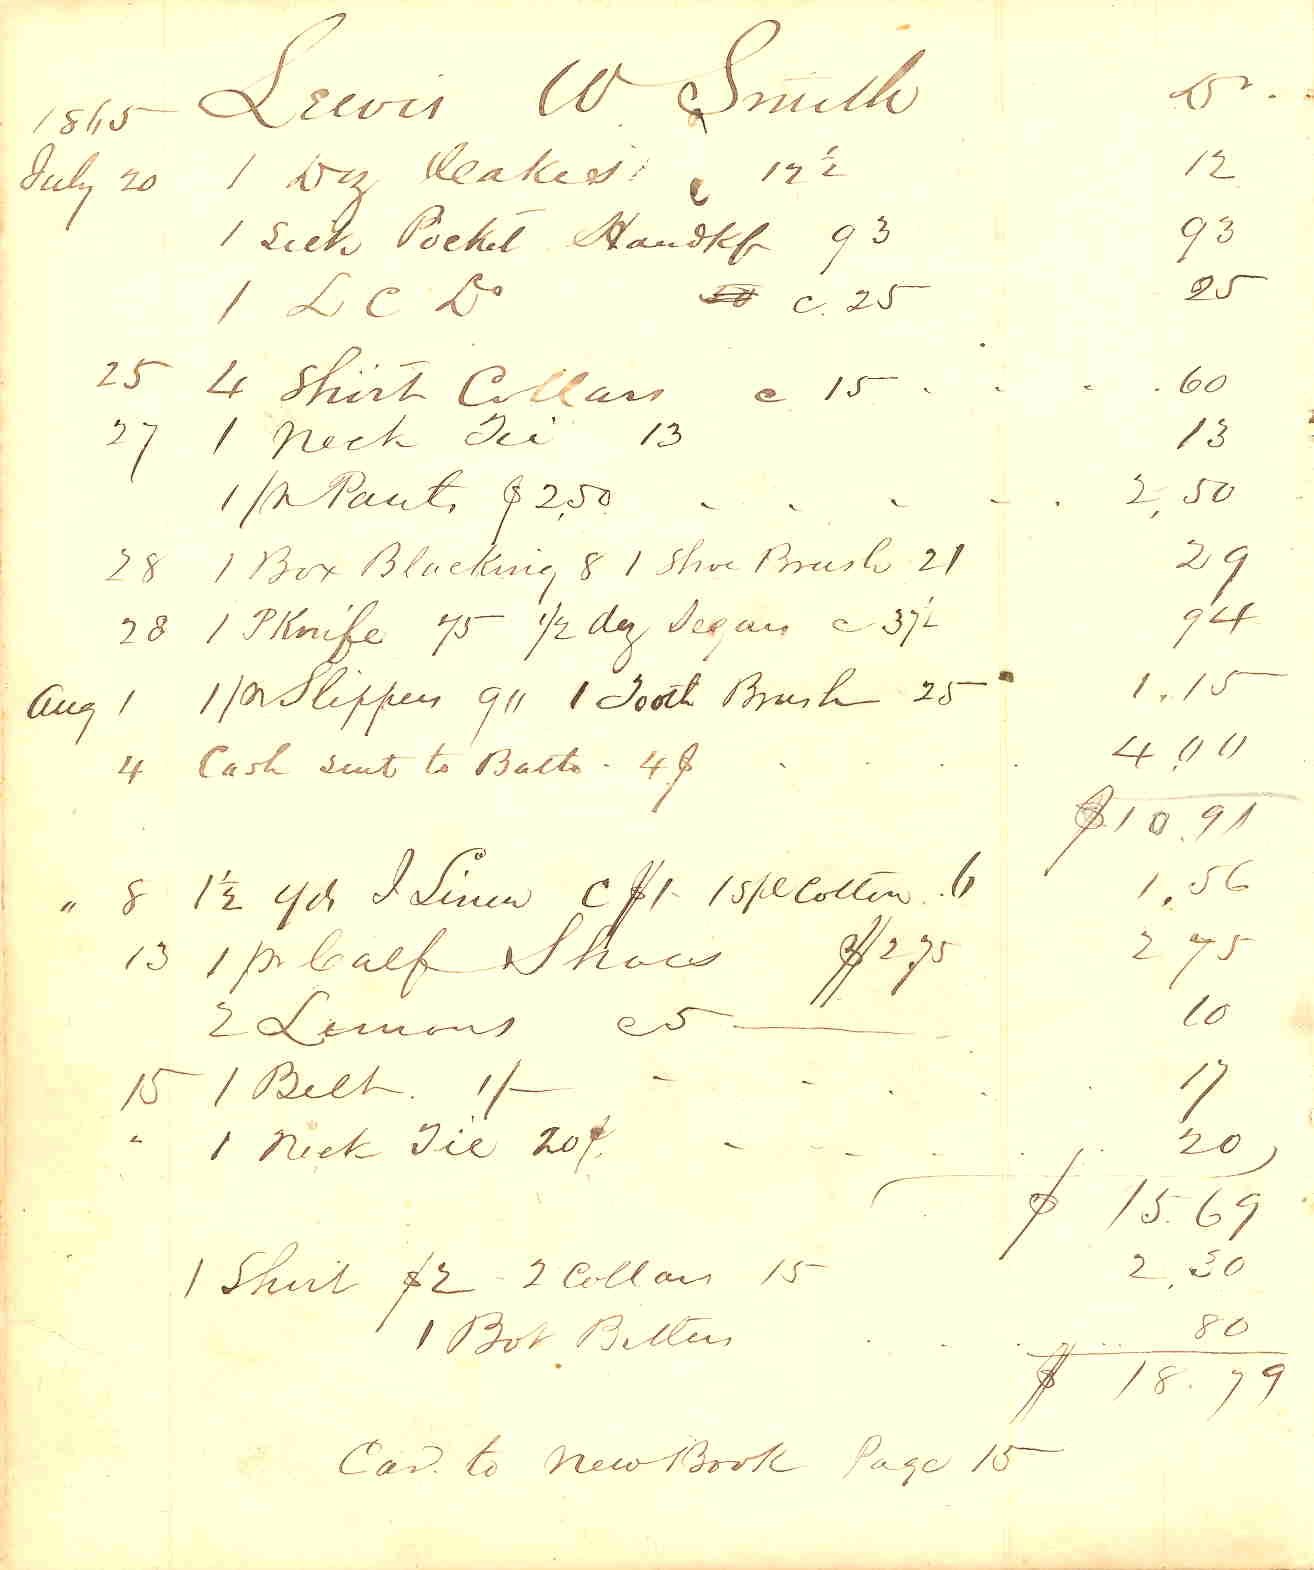 1865 Lewis W Smith Dr.
July 20 1 Doz Cakes c 12½ 12
1 Silk Pocket Handkf 93 93
1 L C Do c. 25 25
25 4 Shirt Collars c 15 60
27 1 Neck Tie 13 13
1 pr Pants $2,50 2,50
28 1 Box Blacking 8 1 Shoe Brush 21 29
28 1 P Knife 75 ½ doz Segars c 37½ 94
Aug 1 1 pr Slippers 90 1 Tooth Brush 25 1.15
4 Cash sent to Balto. 4$ 4.00
$10.91
" 8 1½ yds I Linen c $1- 1 Spl Cotton .6 1.56
13 1 pr Calf Shoes $2,75 2 75
2 Lemons c 5 10
15 1 Belt. 1/- 17
" 1 Neck Tie 20¢ 20
$ 15.69
1 Shirt $2 - 2 Collars 15 2.30
1 Bot Bitters 80
$ 18.79
Card. to New Book Page 15